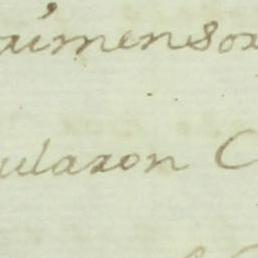 ximensox
ulaxon C